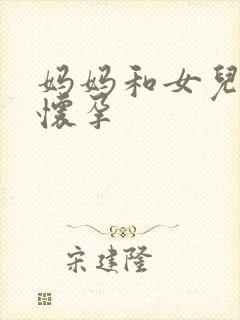 妈妈和女兒
懷孕
宋建隆